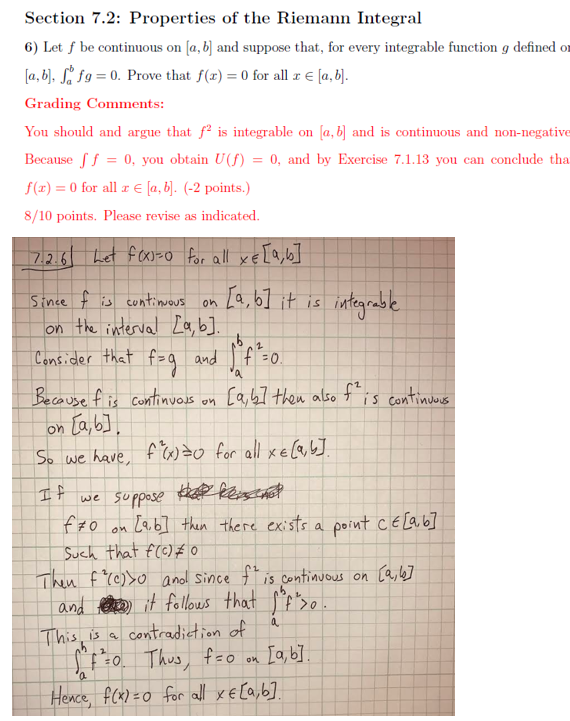 Section 7.2: Properties of the Riemann Integral
6) Let f be continuous on [a, b] and suppose that, for every integrable function g defined on
[a, b], ∫_a^b fg = 0. Prove that f(x) = 0 for all x ∈ [a, b].
Grading Comments:
You should and argue that f² is integrable on [a, b] and is continuous and non-negative
Because ∫ f = 0, you obtain U(f) = 0, and by Exercise 7.1.13 you can conclude tha
f(x) = 0 for all x ∈ [a, b]. (-2 points.)
8/10 points. Please revise as indicated.
7.2.6 Let f(x)=0 for all x∈[a,b]
Since f is continuous on [a,b] it is integrable
on the interval [a,b].
Consider that f=g and ∫_a^b f²=0.
Because f is continuous on [a,b] then also f² is continuous
on [a,b].
So we have, f²(x)≥0 for all x∈[a,b].
If we suppose
f≠0 on [a,b] then there exists a point c∈[a,b]
Such that f(c)≠0
Then f²(c)>0 and since f² is continuous on [a,b]
and it follows that ∫_a^b f²>0.
This is a contradiction of
∫_a^b f²=0. Thus, f=0 on [a,b].
Hence, f(x)=0 for all x∈[a,b].